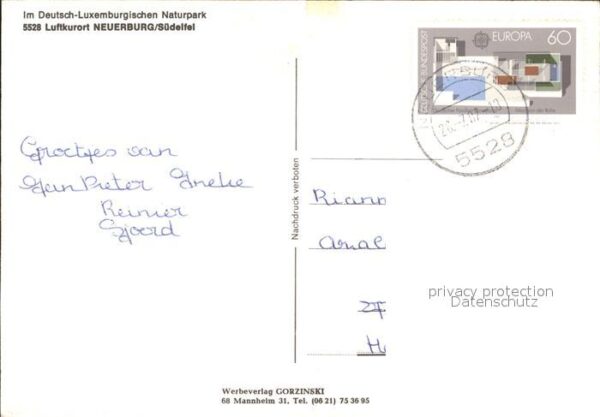 Im Deutsch-Luxemburgischen Naturpark
5528 Luftkurort NEUERBURG/Südeifel
DEUTSCHE BUNDESPOST
EUROPA 60
5528
Groetjes van
Jan Pieter Ineke
Reinier
Sjoerd
Nachdruck verboten
Riann
Anal
H
privacy protection
Datenschutz
Werbeverlag GORZINSKI
68 Mannheim 31, Tel. (06 21) 75 36 95